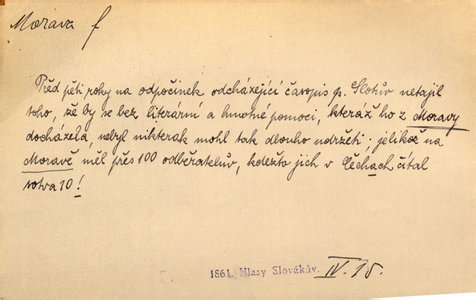 Morava f
Před pěti roky na odpočinek odcházející časopis p. Šlotův netajil
toho, že by se bez literární a hmotné pomoci, kteráž ho z Moravy
docházela, nebyl nikterak mohl tak dlouho udržeti; jelikož na
Moravě měl přes 100 odběratelův, kdežto jich v Čechach čítal
sotva 10!
1861. Hlasy Slovákův. IV. 95.